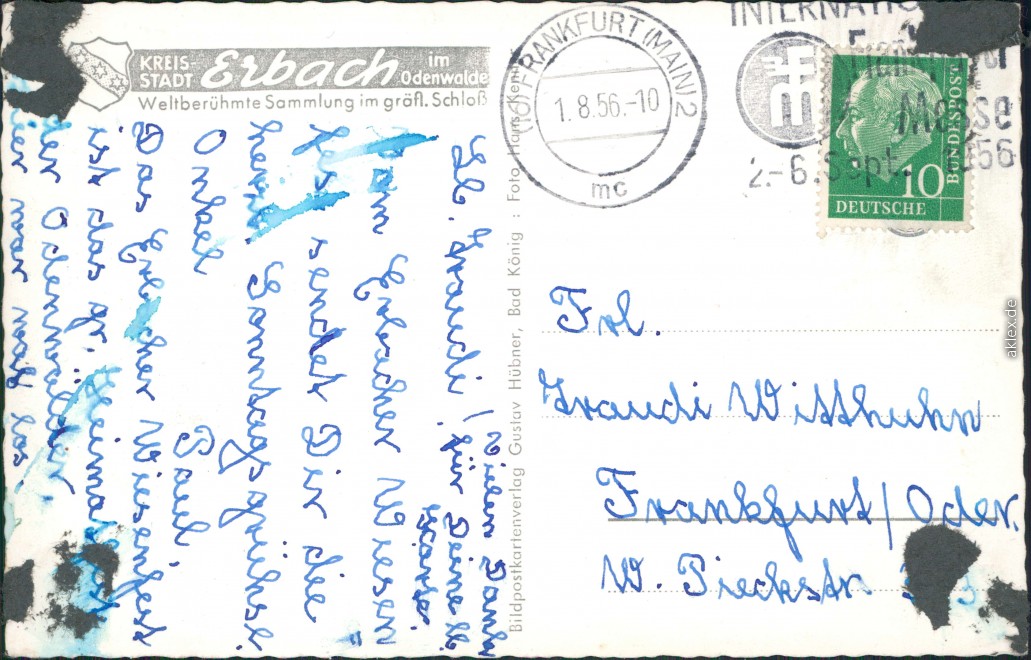 KREIS-
STADT Erbach im
Odenwalde
Weltberühmte Sammlung im gräfl. Schloß
(16) FRANKFURT (MAIN) 2
1.8.56.-10
mc
INTERNATIO
Messe
2.-6. Sept. 1956
10
DEUTSCHE
BUNDESPOST
Bildpostkartenverlag Gustav Hübner, Bad König : Foto Hans Kem
Lb. Traudi! Vielen Dank
für Deine lb.
Karte.
Vom Erbacher Wiesen
fest sendet Dir die
herzl. Sonntagsgrüße.
Onkel Paul,
Das Erbacher Wiesenfest
ist das gr. Heimatfest
der Odenwälder.
Hier war was los.
Frl.
Traudi Witthuhn
Frankfurt/Oder.
W. Pieckstr.
aklex.de